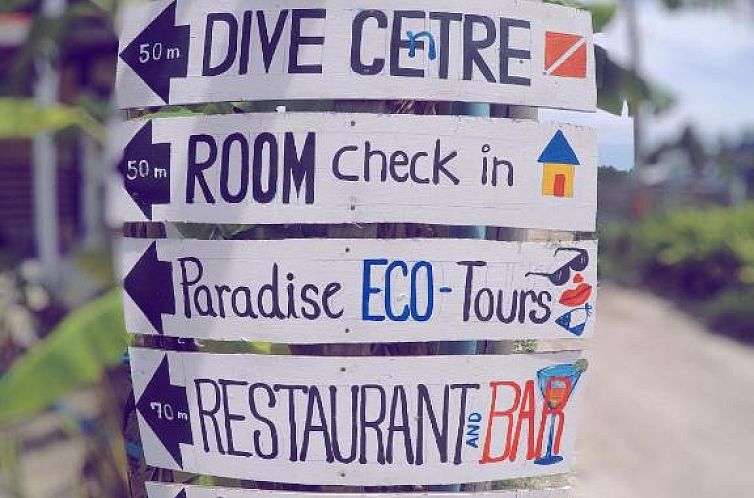 50 m DIVE CEnTRE
50 m ROOM check in
Paradise ECO-Tours
70 m RESTAURANT AND BAR